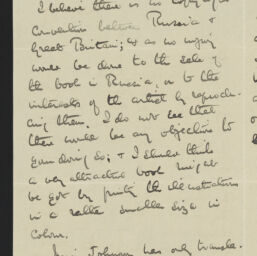 I believe there is no copyright
Convention between Russia &
Great Britain; & as no injury
would be done to the sale of
the book in Russia, or to the
interests of the artist by reproduc-
ing them. I do not see that
there would be any objection to
your doing so; & I should think
a very attractive book might
be got by printing the illustrations
in a rather smaller size in
colour.
Johnson has only transla-